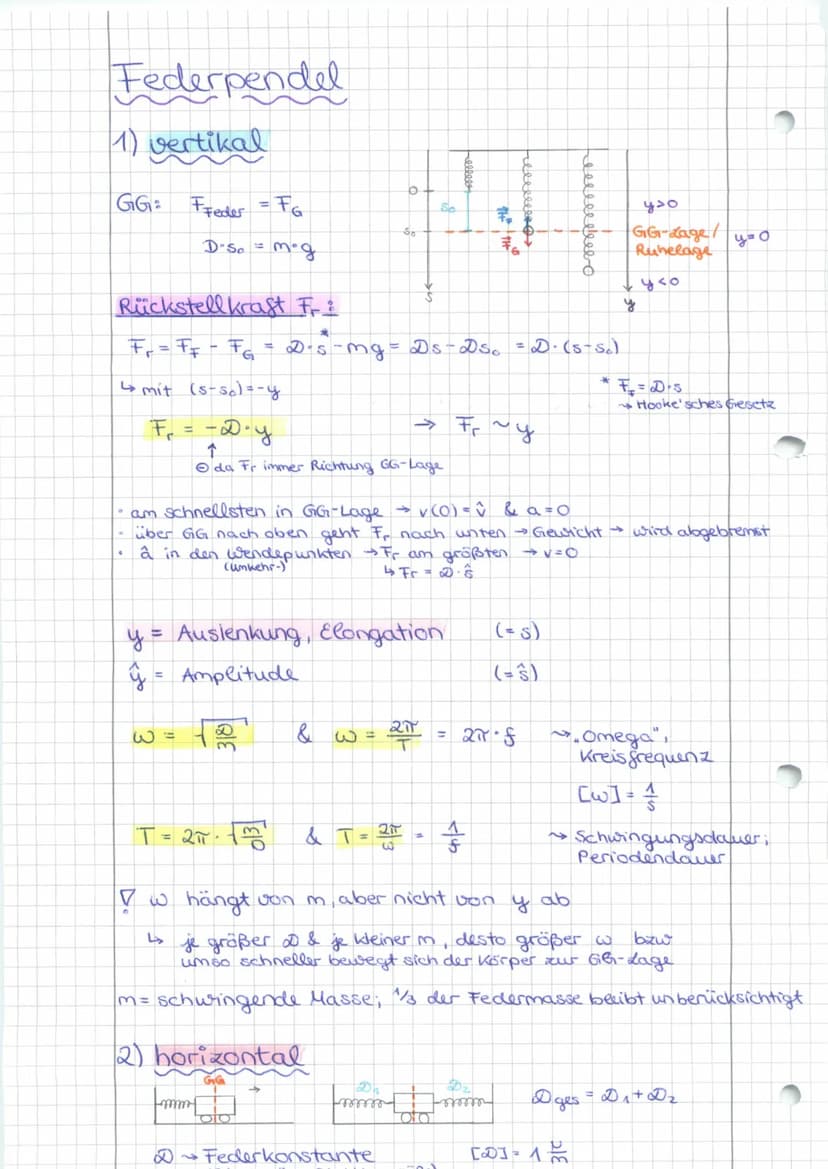 Federpendel
1) vertikal
GG: F_Feder = F_G
D·s₀ = m·g
0
s₀
s₀
F⃗_F
F⃗_G
s
y>0
GG-Lage/
Ruhelage
y=0
y<0
y
Rückstellkraft F_r:
F_r = F_F - F_G = D·s* - mg = Ds - Ds₀ = D·(s-s₀)
↳ mit (s-s₀) = -y
* F_F = D·s
→ Hooke'sches Gesetz
F_r = -D·y → F_r ~ y
↑
⊖ da Fr immer Richtung GG-Lage
· am schnellsten in GG-Lage → v(0) = v̂ & a=0
· über GG nach oben geht F_r nach unten → Gewicht → wird abgebremst
· â in den Wendepunkten → F_r am größten → v=0
(Umkehr-) ↳ Fr = D·ŝ
y = Auslenkung, Elongation (= s)
ŷ = Amplitude (= ŝ)
ω = √(D/m) & ω = 2π/T = 2π·f ⤳ „Omega",
Kreisfrequenz
[ω] = 1/s
T = 2π·√(m/D) & T = 2π/ω = 1/f ⤳ Schwingungsdauer;
Periodendauer
! ω hängt von m, aber nicht von y ab
↳ je größer D & je kleiner m, desto größer ω bzw
umso schneller bewegt sich der Körper zur GG-Lage
m = schwingende Masse; 1/3 der Federmasse bleibt unberücksichtigt
2) horizontal
GG
D₁ D₂
D_ges = D₁ + D₂
D ⤳ Federkonstante [D] = 1 N/m